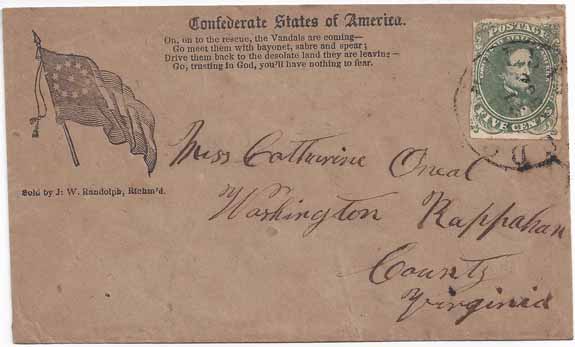 Confederate States of America.
On, on to the rescue, the Vandals are coming—
Go meet them with bayonet, sabre and spear;
Drive them back to the desolate land they are leaving—
Go, trusting in God, you'll have nothing to fear.
POSTAGE
FIVE CENTS
Sold by J. W. Randolph, Richm'd.
Miss Catharine Oneal
Washington Rappahan
County
Virginia